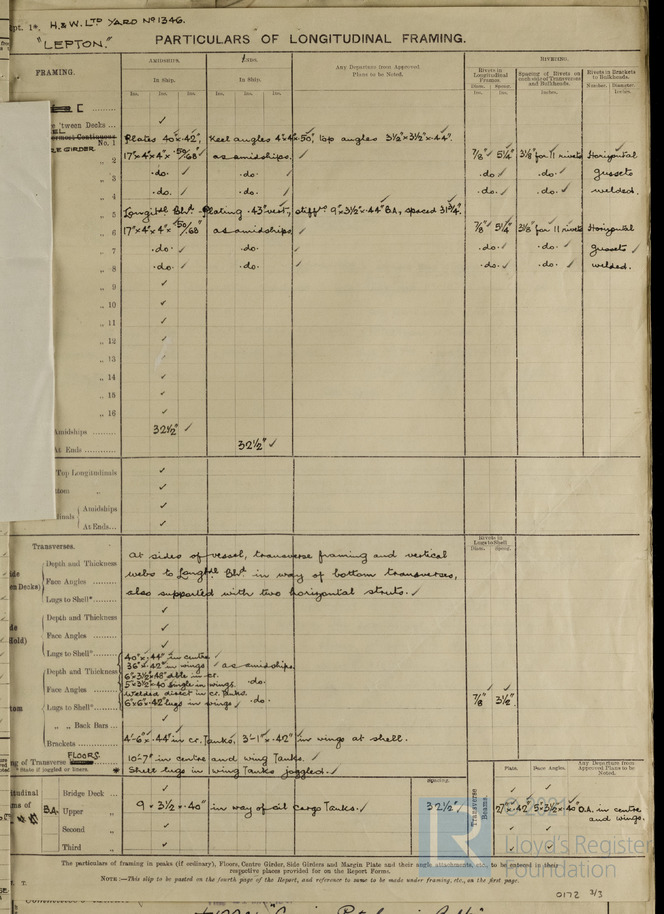 pt. 1*. H.&W. LTD YARD No 1346.
"LEPTON." PARTICULARS OF LONGITUDINAL FRAMING.
FRAMING. AMIDSHIPS. ENDS. Any Departure from Approved Plans to be Noted. RIVETING.
In Ship. In Ship. Rivets in Longitudinal Frames. Spacing of Rivets on each side of Transverses and Bulkheads. Rivets in Brackets to Bulkheads.
Ins. Ins. Ins. Ins. Ins. Ins. Diam. Spacg. Inches. Number. Diameter.
'tween Decks ... ✓
No. 1 Plates 40"×.42", Keel angles 4"×4"×.50", top angles 3½"×3½"×.44".
GIRDER. „ 2 17"×4"×4"×.50/.68" ✓ as amidships. ✓ 7/8" ✓ 5¼" ✓ 3⅛" for 11 rivets Horizontal
„ 3 .do. ✓ .do. ✓ .do. ✓ .do. ✓ gussets
„ 4 .do. ✓ .do. ✓ .do. ✓ .do. ✓ welded.
„ 5 Longitdl Blhd Plating .43" vert, stiffrs 9"×3½"×.44" BA, spaced 31¾".
„ 6 17"×4"×4"×.50/.68" as amidships ✓ 7/8" ✓ 5¼" ✓ 3⅛" for 11 rivets Horizontal
„ 7 .do. ✓ .do. ✓ .do. ✓ .do. ✓ gussets ✓
„ 8 .do. ✓ .do. ✓ .do. ✓ .do. ✓ welded.
„ 9 ✓
„ 10 ✓
„ 11 ✓
„ 12 ✓
„ 13 ✓
„ 14 ✓
„ 15 ✓
„ 16 ✓
Amidships ......... 32½" ✓
At Ends ......... 32½" ✓
Top Longitudinals ✓
tom „ ✓
dinals { Amidships ✓
At Ends... ✓
Transverses. Rivets in Lugs to Shell
Diam. Spacg.
Depth and Thickness At sides of vessel, transverse framing and vertical
Face Angles ......... webs to Longtdl Blhd in way of bottom transverses,
Lugs to Shell* ......... also supported with two horizontal struts. ✓
Depth and Thickness ✓
Face Angles ......... ✓
Lugs to Shell* ......... ✓
Depth and Thickness 40"×.44" in centre ✓
36"×.42" in wings ✓ as amidships.
Face Angles ......... 6"×3½"×.48" dble in cr.
5"×3½"×.40 single in wings. .do.
Lugs to Shell* ......... welded direct in cr. tanks.
6"×6"×.42" lugs in wings ✓ .do. 7/8" ✓ 3½" ✓
„ „ Back Bars ... ✓
Brackets ......... 4'-6"×.44" in cr. Tanks, 3'-1"×.42" in wings at shell.
ng of Transverse FLOORS. 10'-7" in centre and wing Tanks. ✓
* State if joggled or liners. * Shell lugs in wing Tanks joggled. ✓
Spacing. Plate. Face Angles. Any Departure from Approved Plans to be Noted.
Bridge Deck ... ✓ ✓ ✓
BA. Upper „ 9 × 3½ × .40" in way of oil Cargo Tanks. ✓ 32½" ✓ Transverse Beams. 27"×.42" 5"×3½"×.40" O.A. in centre and wings.
Second „ ✓ ✓ ✓
Third „ ✓ ✓ ✓
The particulars of framing in peaks (if ordinary), Floors, Centre Girder, Side Girders and Margin Plate and their angle attachments, etc., to be entered in their
respective places provided for on the Report Forms.
NOTE:—This slip to be pasted on the fourth page of the Report, and reference to same to be made under framing, etc., on the first page.
© 2021
Lloyd's Register
Foundation
0172 3/3